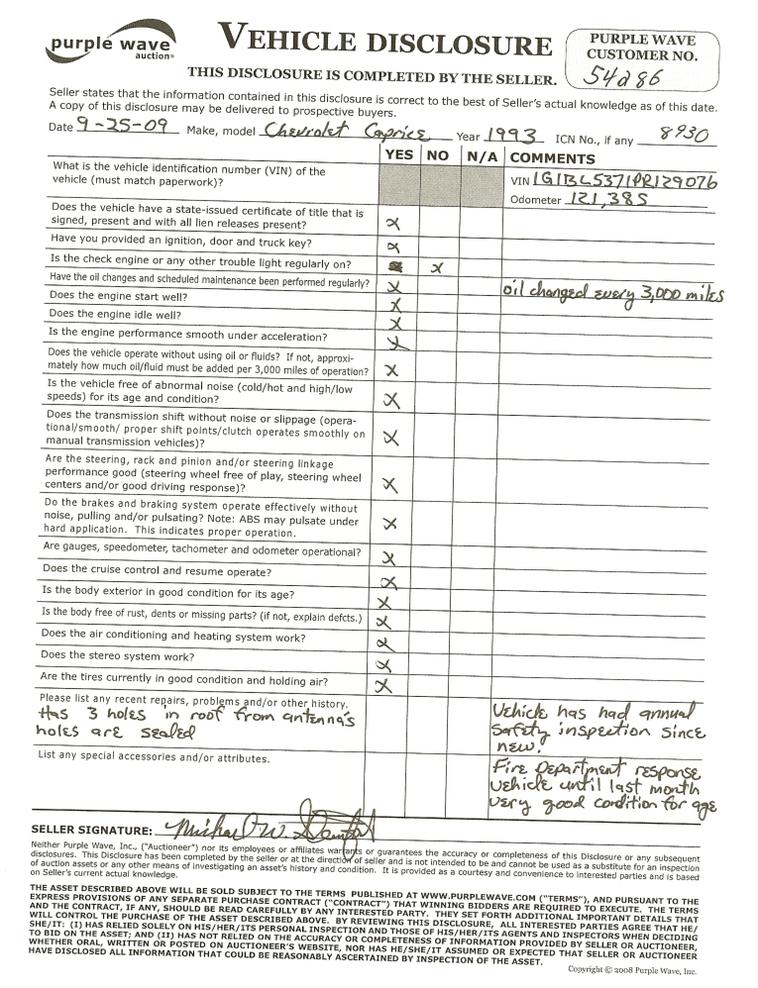 purple wave
auction®
VEHICLE DISCLOSURE
THIS DISCLOSURE IS COMPLETED BY THE SELLER.
PURPLE WAVE
CUSTOMER NO.
54286
Seller states that the information contained in this disclosure is correct to the best of Seller's actual knowledge as of this date.
A copy of this disclosure may be delivered to prospective buyers.
Date 9-25-09 Make, model Chevrolet Caprice Year 1993 ICN No., if any 8930
YES NO N/A COMMENTS
What is the vehicle identification number (VIN) of the
vehicle (must match paperwork)?
VIN 1G1BL5371PR129076
Odometer 121,385
Does the vehicle have a state-issued certificate of title that is
signed, present and with all lien releases present? x
Have you provided an ignition, door and truck key? x
Is the check engine or any other trouble light regularly on? x
Have the oil changes and scheduled maintenance been performed regularly? x oil changed every 3,000 miles
Does the engine start well? x
Does the engine idle well? x
Is the engine performance smooth under acceleration? x
Does the vehicle operate without using oil or fluids? If not, approxi-
mately how much oil/fluid must be added per 3,000 miles of operation? x
Is the vehicle free of abnormal noise (cold/hot and high/low
speeds) for its age and condition? x
Does the transmission shift without noise or slippage (opera-
tional/smooth/ proper shift points/clutch operates smoothly on
manual transmission vehicles)? x
Are the steering, rack and pinion and/or steering linkage
performance good (steering wheel free of play, steering wheel
centers and/or good driving response)? x
Do the brakes and braking system operate effectively without
noise, pulling and/or pulsating? Note: ABS may pulsate under
hard application. This indicates proper operation. x
Are gauges, speedometer, tachometer and odometer operational? x
Does the cruise control and resume operate? x
Is the body exterior in good condition for its age? x
Is the body free of rust, dents or missing parts? (if not, explain defcts.) x
Does the air conditioning and heating system work? x
Does the stereo system work? x
Are the tires currently in good condition and holding air? x
Please list any recent repairs, problems and/or other history.
Has 3 holes in roof from antenna's
holes are sealed
Vehicle has had annual
safety inspection since
new.
List any special accessories and/or attributes.
Fire Department response
vehicle until last month
very good condition for age
SELLER SIGNATURE: Michael W.
Neither Purple Wave, Inc., ("Auctioneer") nor its employees or affiliates warrants or guarantees the accuracy or completeness of this Disclosure or any subsequent
disclosures. This Disclosure has been completed by the seller or at the direction of seller and is not intended to be and cannot be used as a substitute for an inspection
of auction assets or any other means of investigating an asset's history and condition. It is provided as a courtesy and convenience to interested parties and is based
on Seller's current actual knowledge.
THE ASSET DESCRIBED ABOVE WILL BE SOLD SUBJECT TO THE TERMS PUBLISHED AT WWW.PURPLEWAVE.COM ("TERMS"), AND PURSUANT TO THE
EXPRESS PROVISIONS OF ANY SEPARATE PURCHASE CONTRACT ("CONTRACT") THAT WINNING BIDDERS ARE REQUIRED TO EXECUTE. THE TERMS
AND THE CONTRACT, IF ANY, SHOULD BE READ CAREFULLY BY ANY INTERESTED PARTY. THEY SET FORTH ADDITIONAL IMPORTANT DETAILS THAT
WILL CONTROL THE PURCHASE OF THE ASSET DESCRIBED ABOVE. BY REVIEWING THIS DISCLOSURE, ALL INTERESTED PARTIES AGREE THAT HE/
SHE/IT: (I) HAS RELIED SOLELY ON HIS/HER/ITS PERSONAL INSPECTION AND THOSE OF HIS/HER/ITS AGENTS AND INSPECTORS WHEN DECIDING
TO BID ON THE ASSET; AND (II) HAS NOT RELIED ON THE ACCURACY OR COMPLETENESS OF INFORMATION PROVIDED BY SELLER OR AUCTIONEER,
WHETHER ORAL, WRITTEN OR POSTED ON AUCTIONEER'S WEBSITE, NOR HAS HE/SHE/IT ASSUMED OR EXPECTED THAT SELLER OR AUCTIONEER
HAVE DISCLOSED ALL INFORMATION THAT COULD BE REASONABLY ASCERTAINED BY INSPECTION OF THE ASSET.
Copyright © 2008 Purple Wave, Inc.